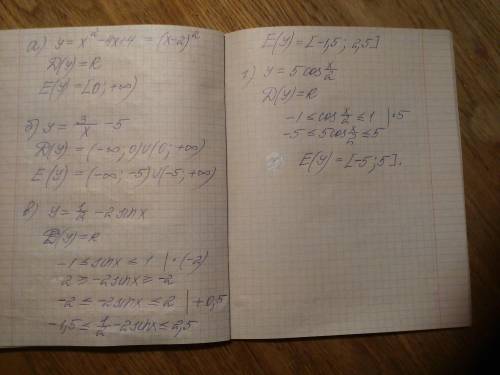 а) y = x² - 4x + 4 = (x-2)²
D(y) = R
E(y) = [0; +∞)
б) y = 3/x - 5
D(y) = (-∞; 0) ∪ (0; +∞)
E(y) = (-∞; -5) ∪ (-5; +∞)
в) y = 1/2 - 2 sin x
D(y) = R
-1 ≤ sin x ≤ 1 | · (-2)
2 ≥ -2 sin x ≥ -2
-2 ≤ -2 sin x ≤ 2 | + 0,5
-1,5 ≤ 1/2 - 2 sin x ≤ 2,5
E(y) = [-1,5; 2,5]
г) y = 5 cos x/2
D(y) = R
-1 ≤ cos x/2 ≤ 1 | · 5
-5 ≤ 5 cos x/2 ≤ 5
E(y) = [-5; 5].